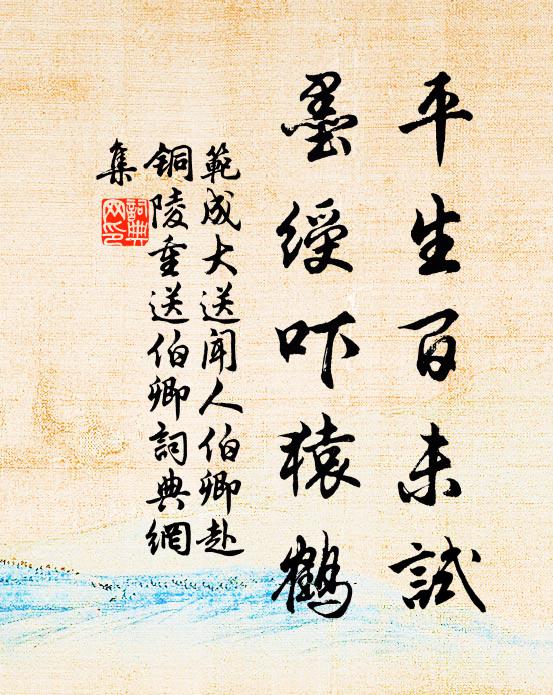 平生百未試
墨綬吓猿鶴
範成大送闻人伯卿赴
铜陵重送伯卿詞典網
集
詞典
网印